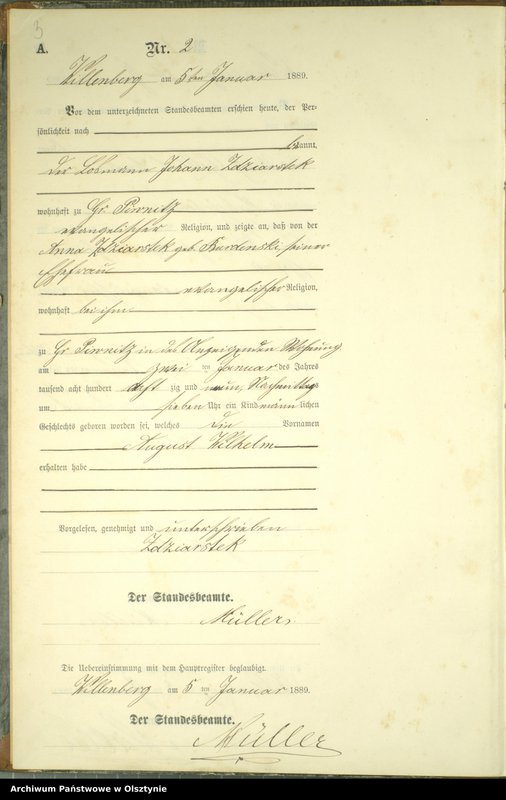 3
A. Nr. 2
Willenberg am 5ten Januar 1889.
Vor dem unterzeichneten Standesbeamten erschien heute, der Per-
sönlichkeit nach
bekannt,
der Losmann Johann Zdziarstek
wohnhaft zu Gr Piwnitz
evangelischer Religion, und zeigte an, daß von der
Anna Zdziarstek geb. Burdenski, seiner
Ehefrau
evangelischer Religion,
wohnhaft bei ihm
zu Gr Piwnitz in des Anzeigenden Wohnung
am zwei ten Januar des Jahres
tausend acht hundert acht zig und neun, Nachmittags
um sieben Uhr ein Kind männ lichen
Geschlechts geboren worden sei, welches die Vornamen
August Wilhelm
erhalten habe
Vorgelesen, genehmigt und unterschrieben
Zdziarstek
Der Standesbeamte.
Müller.
Die Uebereinstimmung mit dem Hauptregister beglaubigt.
Willenberg am 5 ten Januar 1889.
Der Standesbeamte.
Müller
Archiwum Państwowe w Olsztynie